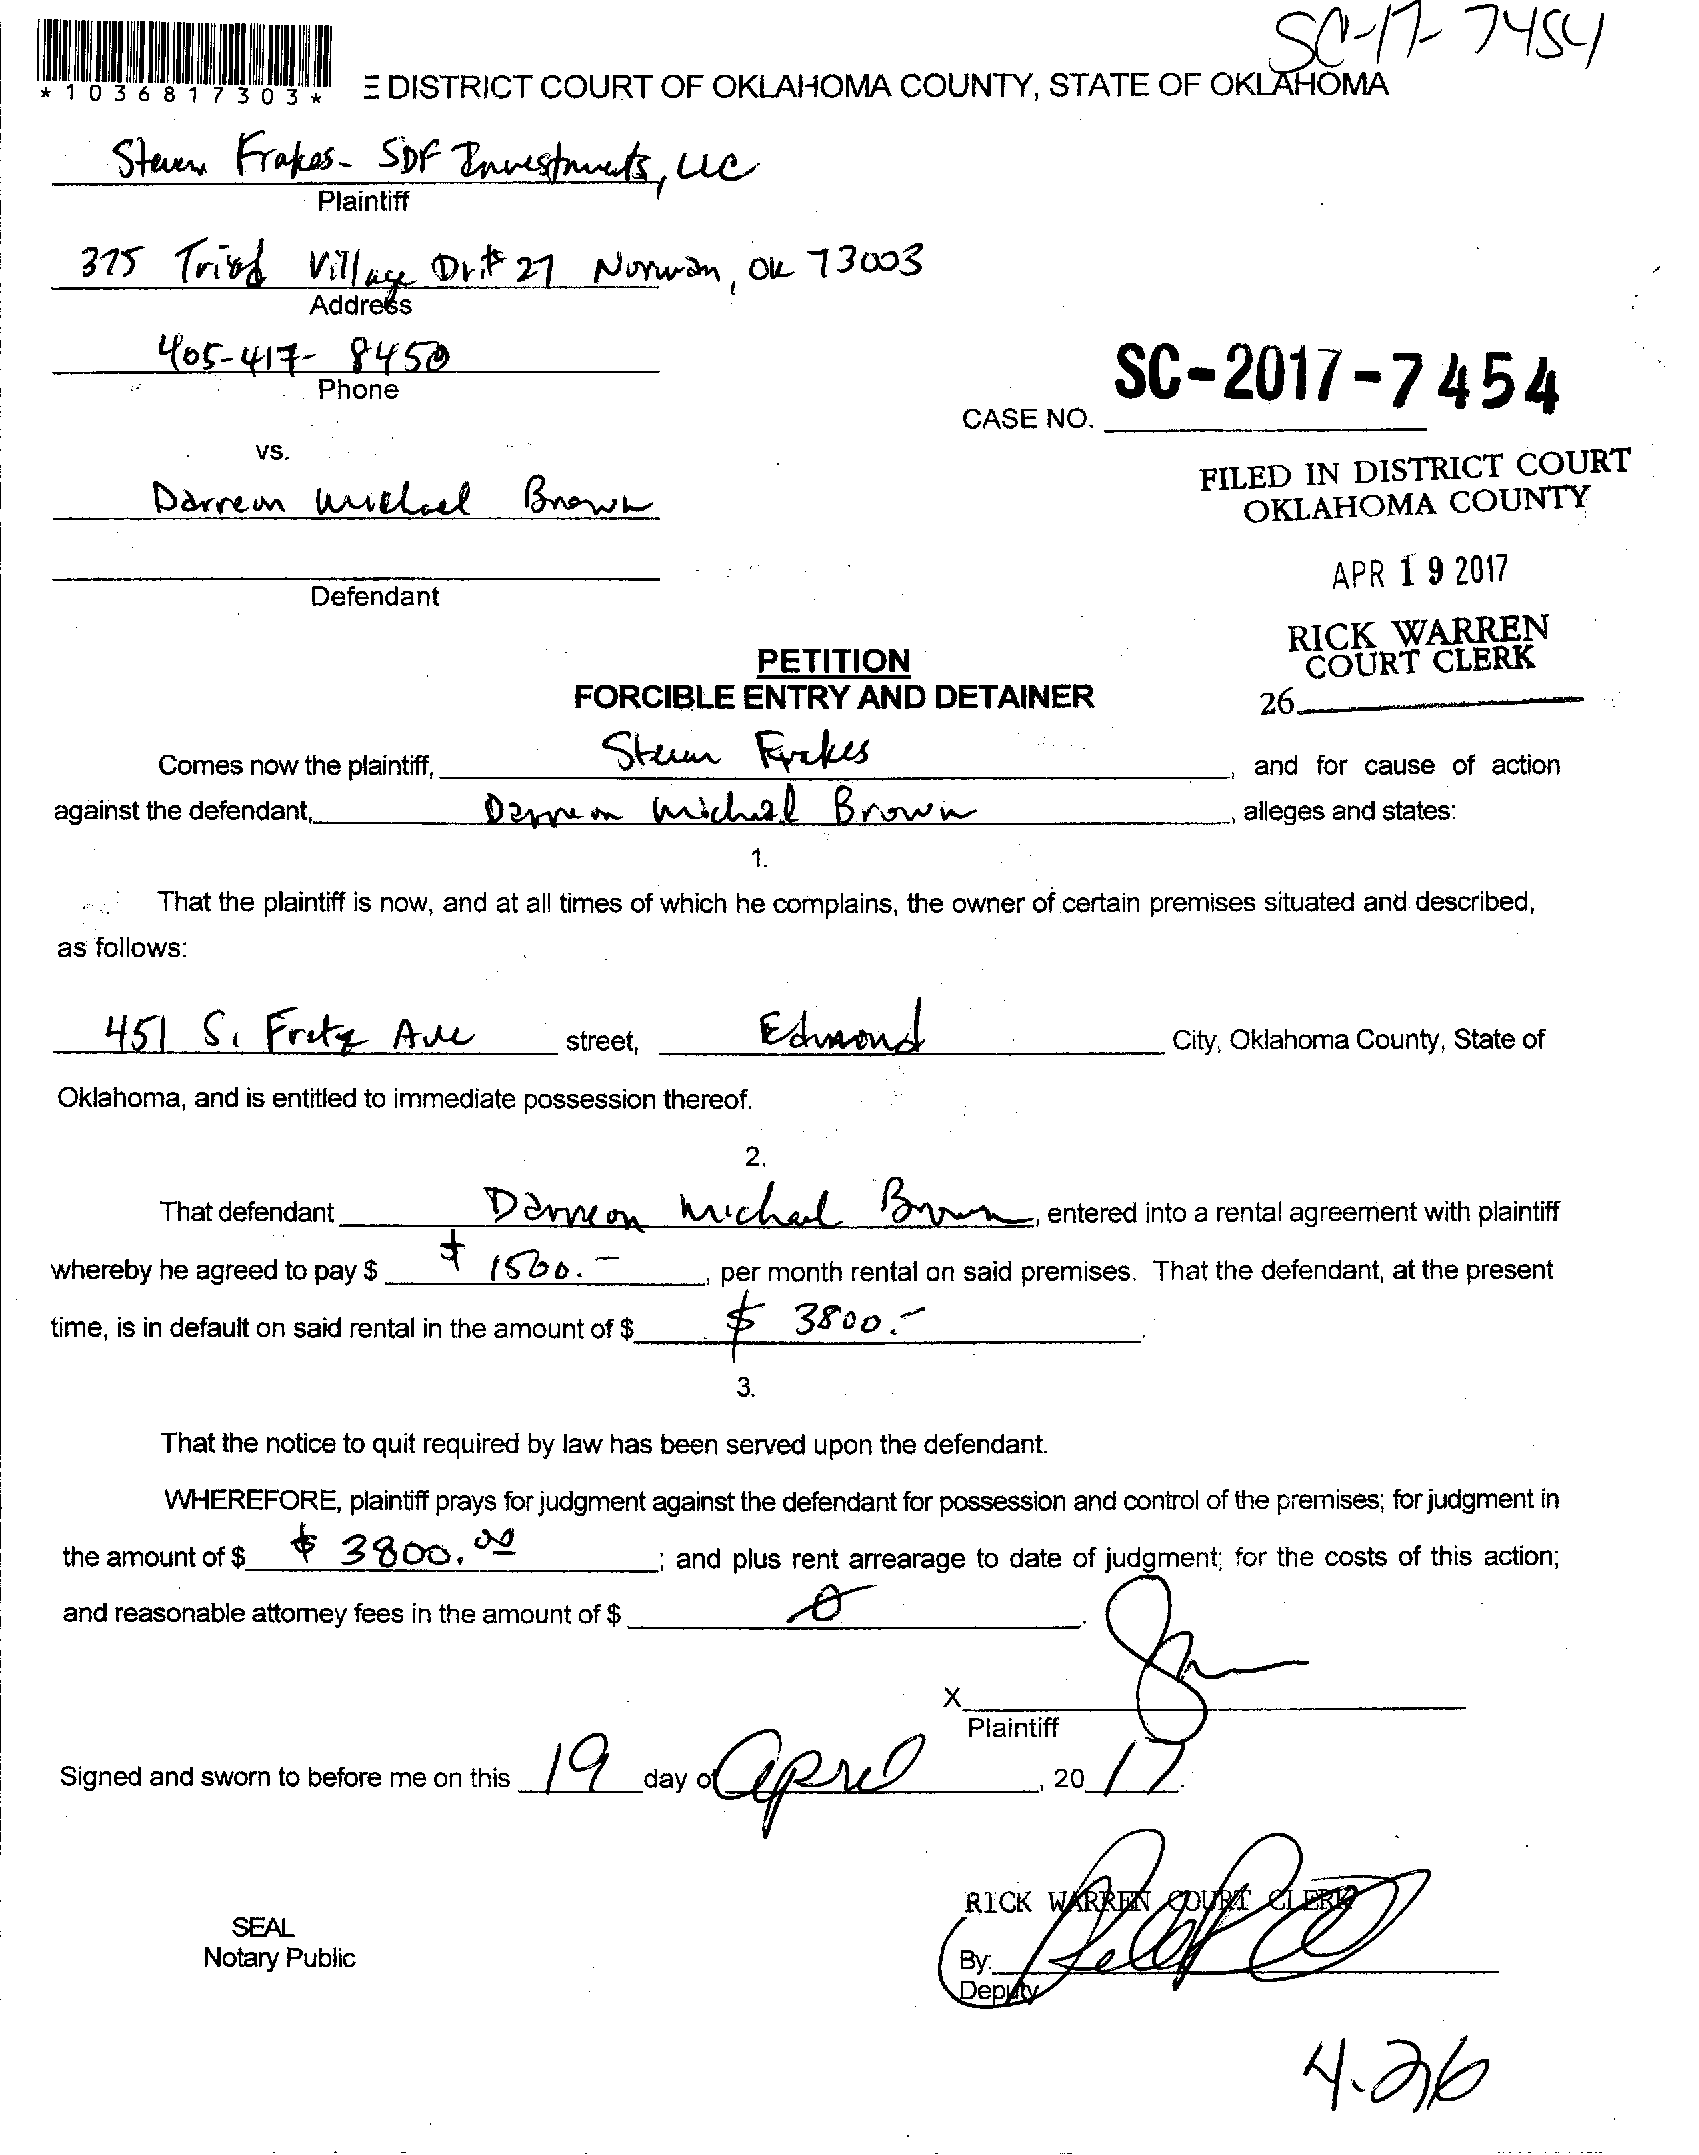 SC-17-7454
*1036817303*
E DISTRICT COURT OF OKLAHOMA COUNTY, STATE OF OKLAHOMA
Steven Frakes - SDF Investments, LLC
Plaintiff
375 Triad Village Dr # 27 Norman, OK 73003
Address
405-417-8450
Phone
SC-2017-7454
CASE NO.
vs.
FILED IN DISTRICT COURT
OKLAHOMA COUNTY
Darreon Michael Brown
APR 19 2017
Defendant
RICK WARREN
COURT CLERK
26
PETITION
FORCIBLE ENTRY AND DETAINER
Comes now the plaintiff, Steven Frakes, and for cause of action
against the defendant, Darreon Michael Brown, alleges and states:
1.
That the plaintiff is now, and at all times of which he complains, the owner of certain premises situated and described,
as follows:
451 S. Fretz Ave street, Edmond City, Oklahoma County, State of
Oklahoma, and is entitled to immediate possession thereof.
2.
That defendant Darreon Michael Brown, entered into a rental agreement with plaintiff
whereby he agreed to pay $ $ 1500.-, per month rental on said premises. That the defendant, at the present
time, is in default on said rental in the amount of $ $ 3800.-.
3.
That the notice to quit required by law has been served upon the defendant.
WHEREFORE, plaintiff prays for judgment against the defendant for possession and control of the premises; for judgment in
the amount of $ $ 3800.00; and plus rent arrearage to date of judgment; for the costs of this action;
and reasonable attorney fees in the amount of $ 0.
X
Plaintiff
Signed and sworn to before me on this 19 day of April, 2017.
RICK WARREN COURT CLERK
SEAL
Notary Public
By:
Deputy
4.26